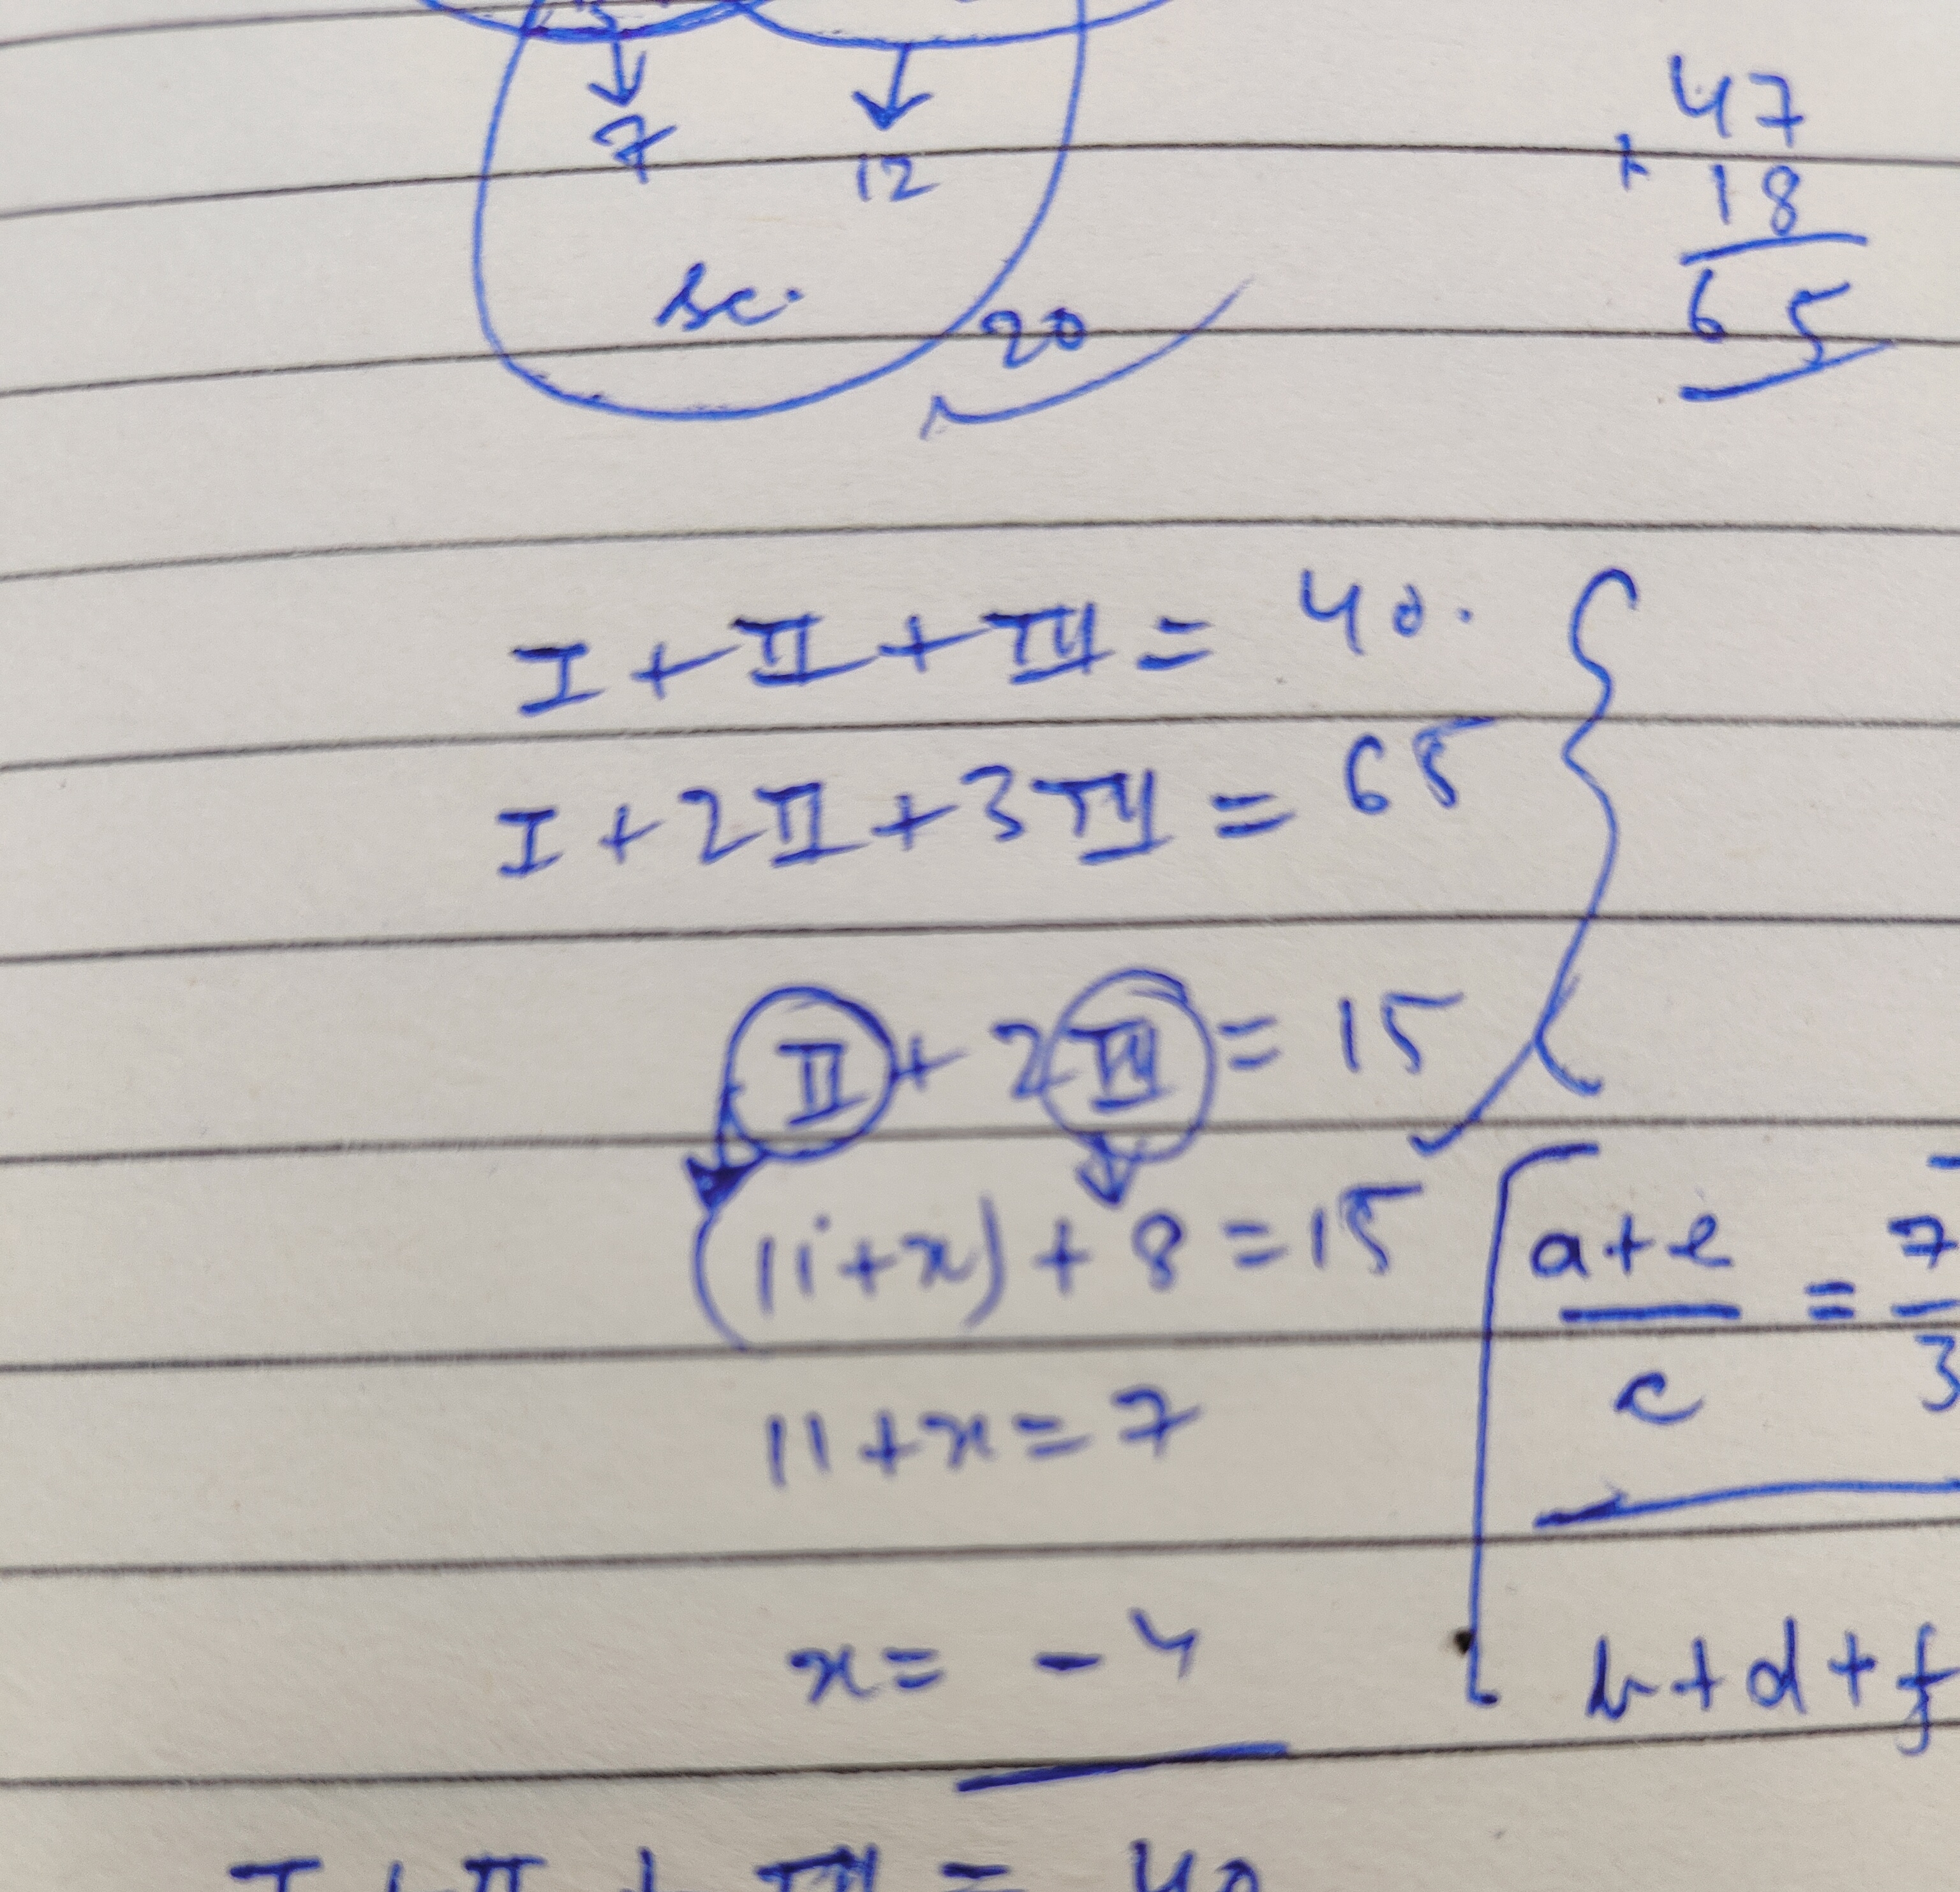 7 12
47
+ 18
65
sc.
20
I + II + III = 40.
I + 2II + 3III = 65
II + 2III = 15
(11+x) + 8 = 15
a+e = 7
c 3
11+x = 7
x = -4
b+d+f
I + II + III = 40